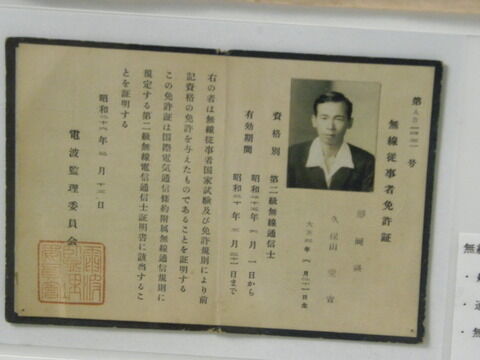 第 号
無線従事者免許証
静岡県
久保山愛吉
大正 年 月二十一日生
資格別 第二級無線通信士
有効期間 昭和二十 年 月一日から
昭和三十年 月三十一日まで
右の者は無線従事者国家試験及び免許規則により前
記資格の免許を与えたものであることを証明する
この免許証は国際電気通信條約附属無線通信規則に
規定する第二級無線電信通信士証明書に該当するこ
とを証明する
昭和二十六年 月十二日
電波監理委員会
無線